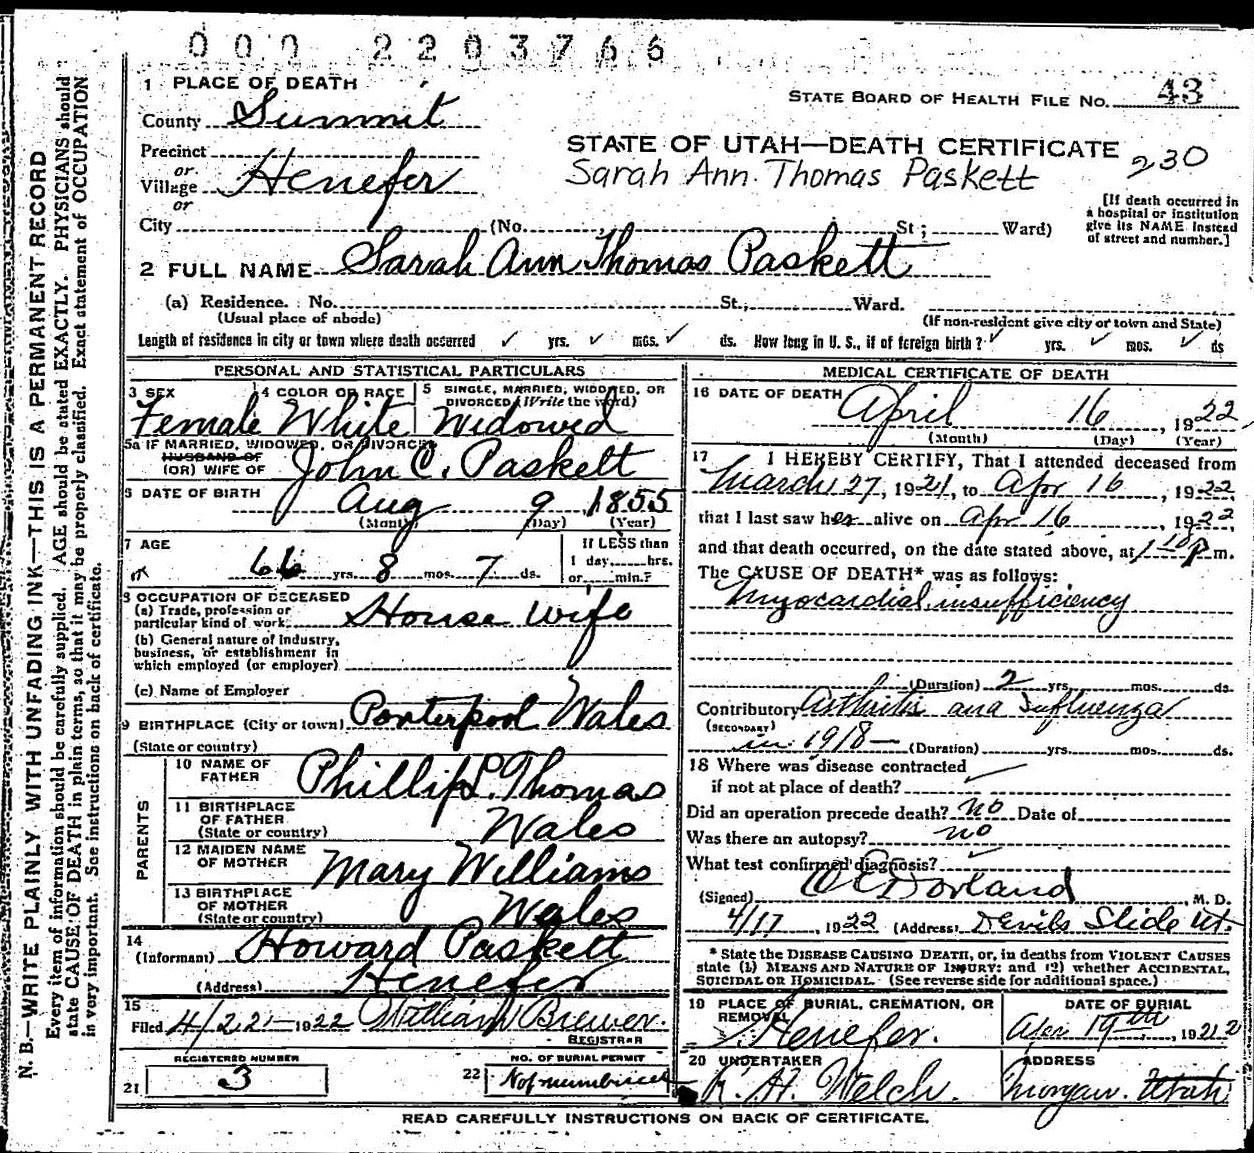 000 2203766
1 PLACE OF DEATH
STATE BOARD OF HEALTH FILE NO. 43
County Summit
STATE OF UTAH—DEATH CERTIFICATE 230
Precinct
or
Village Henefer
Sarah Ann Thomas Paskett
or
[If death occurred in
a hospital or institution
give its NAME instead
of street and number.]
City (No. St; Ward)
2 FULL NAME Sarah Ann Thomas Paskett
(a) Residence. No. St., Ward.
(Usual place of abode) (If non-resident give city or town and State)
Length of residence in city or town where death occurred ✓ yrs. ✓ mos. ✓ ds. How long in U. S., if of foreign birth? ✓ yrs. ✓ mos. ✓ ds
PERSONAL AND STATISTICAL PARTICULARS
3 SEX 4 COLOR OR RACE 5 SINGLE, MARRIED, WIDOWED, OR
DIVORCED (Write the word)
Female White Widowed
5a IF MARRIED, WIDOWED, OR DIVORCED
HUSBAND OF
(OR) WIFE OF John C. Paskett
6 DATE OF BIRTH Aug 9 1855
(Month) (Day) (Year)
7 AGE If LESS than
66 yrs. 8 mos. 7 ds. 1 day, hrs.
or min.?
8 OCCUPATION OF DECEASED
(a) Trade, profession or
particular kind of work House Wife
(b) General nature of Industry,
business, or establishment in
which employed (or employer)
(c) Name of Employer
9 BIRTHPLACE (City or town) Ponterpool Wales
(State or country)
PARENTS
10 NAME OF
FATHER Phillip P. Thomas
11 BIRTHPLACE
OF FATHER
(State or country) Wales
12 MAIDEN NAME
OF MOTHER Mary Williams
13 BIRTHPLACE
OF MOTHER
(State or country) Wales
14
(Informant) Howard Paskett
(Address) Henefer
15
Filed 4/22 1922 William Brewer.
REGISTRAR
REGISTERED NUMBER NO. OF BURIAL PERMIT
21 3 22 Not numbered
MEDICAL CERTIFICATE OF DEATH
16 DATE OF DEATH April 16, 1922
(Month) (Day) (Year)
17 I HEREBY CERTIFY, That I attended deceased from
March 27, 1921, to Apr 16, 1922
that I last saw her alive on Apr 16, 1922
and that death occurred, on the date stated above, at 1 10 P m.
The CAUSE OF DEATH* was as follows:
Myocardial insufficiency
(Duration) 2 yrs. mos. ds.
Contributory Arthritis and Influenza
(SECONDARY)
in 1918— (Duration) yrs. mos. ds.
18 Where was disease contracted
if not at place of death?
Did an operation precede death? no Date of
Was there an autopsy? no
What test confirmed diagnosis?
(Signed) W E Dorland, M. D.
4/17, 1922 (Address) Devils Slide Ut.
* State the DISEASE CAUSING DEATH, or, in deaths from VIOLENT CAUSES
state (1) MEANS AND NATURE OF INJURY; and (2) whether ACCIDENTAL,
SUICIDAL OR HOMICIDAL. (See reverse side for additional space.)
19 PLACE OF BURIAL, CREMATION, OR
REMOVAL DATE OF BURIAL
Henefer. Apr 19th, 1922
20 UNDERTAKER ADDRESS
R. H. Welch. Morgan. Utah
READ CAREFULLY INSTRUCTIONS ON BACK OF CERTIFICATE.
N. B.—WRITE PLAINLY WITH UNFADING INK—THIS IS A PERMANENT RECORD
Every item of information should be carefully supplied. AGE should be stated EXACTLY. PHYSICIANS should
state CAUSE OF DEATH in plain terms, so that it may be properly classified. Exact statement of OCCUPATION
is very important. See instructions on back of certificate.